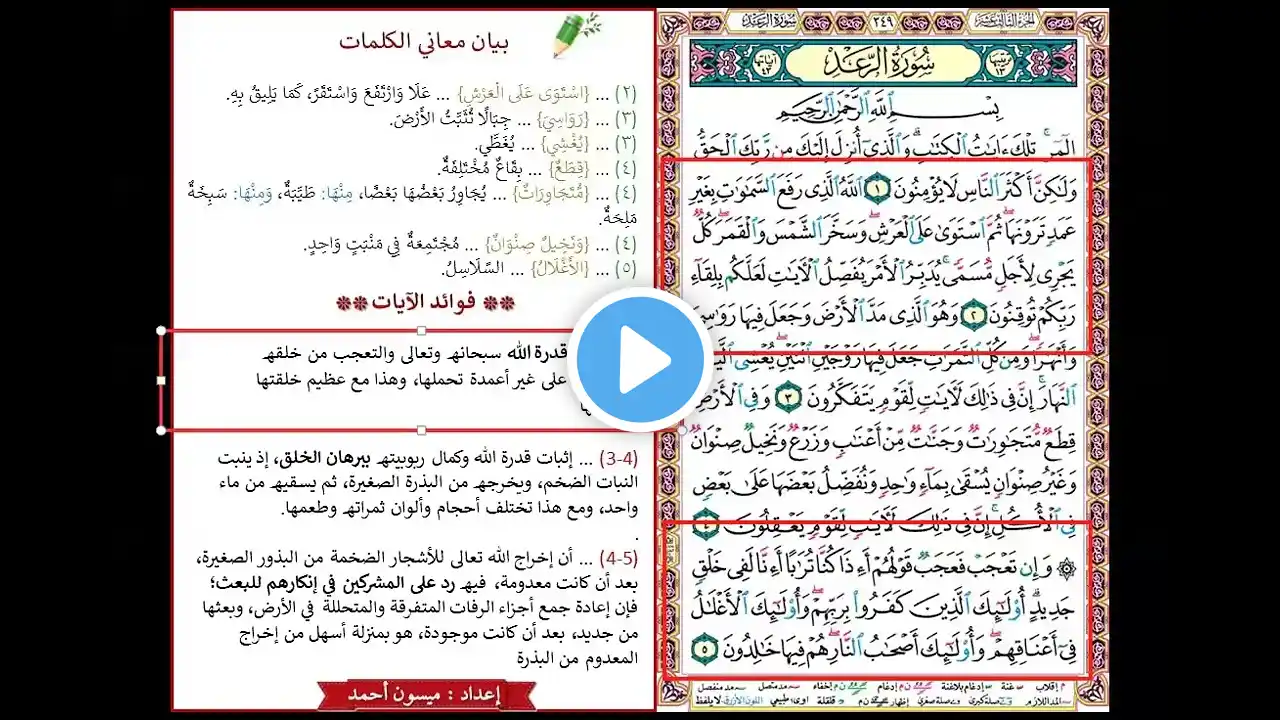 بيان معاني الكلمات
(٢) ... {اسْتَوَى عَلَى الْعَرْشِ} ... عَلَا وَارْتَفَعَ وَاسْتَقَرَّ، كَمَا يَلِيقُ بِهِ.
(٣) ... {رَوَاسِيَ} ... جِبَالًا تُثَبِّتُ الأَرْضَ.
(٣) ... {يُغْشِي} ... يُغَطِّي.
(٤) ... {قِطَعٌ} ... بِقَاعٌ مُخْتَلِفَةٌ.
(٤) ... {مُّتَجَاوِرَاتٌ} ... يُجَاوِرُ بَعْضُهَا بَعْضًا، مِنْهَا: طَيِّبَةٌ، وَمِنْهَا: سَبِخَةٌ
مَلِحَةٌ.
(٤) ... {وَنَخِيلٌ صِنْوَانٌ} ... مُجْتَمِعَةٌ فِي مَنْبَتٍ وَاحِدٍ.
(٥) ... {الأَغْلَالُ} ... السَّلَاسِلُ.
فوائد الآيات
قدرة الله سبحانه وتعالى والتعجب من خلقه
على غير أعمدة تحملها، وهذا مع عظيم خلقتها
(3-4) ... إثبات قدرة الله وكمال ربوبيته ببرهان الخلق، إذ ينبت
النبات الضخم، ويخرجه من البذرة الصغيرة، ثم يسقيه من ماء
واحد، ومع هذا تختلف أحجام وألوان ثمراته وطعمها.
.
(4-5) ... أن إخراج الله تعالى للأشجار الضخمة من البذور الصغيرة،
بعد أن كانت معدومة، فيه رد على المشركين في إنكارهم للبعث؛
فإن إعادة جمع أجزاء الرفات المتفرقة والمتحللة في الأرض، وبعثها
من جديد، بعد أن كانت موجودة، هو بمنزلة أسهل من إخراج
المعدوم من البذرة
إعداد : ميسون أحمد
سورة الرعد ٢٤٩ الجزء الثالث عشر
سُورَةُ الرَّعْدِ
بِسْمِ ٱللَّهِ ٱلرَّحْمَٰنِ ٱلرَّحِيمِ
الٓمٓر ۚ تِلْكَ ءَايَٰتُ ٱلْكِتَٰبِ ۗ وَٱلَّذِىٓ أُنزِلَ إِلَيْكَ مِن رَّبِّكَ ٱلْحَقُّ
وَلَٰكِنَّ أَكْثَرَ ٱلنَّاسِ لَا يُؤْمِنُونَ ١ ٱللَّهُ ٱلَّذِى رَفَعَ ٱلسَّمَٰوَٰتِ بِغَيْرِ
عَمَدٍ تَرَوْنَهَا ۖ ثُمَّ ٱسْتَوَىٰ عَلَى ٱلْعَرْشِ ۖ وَسَخَّرَ ٱلشَّمْسَ وَٱلْقَمَرَ ۖ كُلٌّ
يَجْرِى لِأَجَلٍ مُّسَمًّى ۚ يُدَبِّرُ ٱلْأَمْرَ يُفَصِّلُ ٱلْءَايَٰتِ لَعَلَّكُم بِلِقَآءِ
رَبِّكُمْ تُوقِنُونَ ٢ وَهُوَ ٱلَّذِى مَدَّ ٱلْأَرْضَ وَجَعَلَ فِيهَا رَوَٰسِىَ
وَأَنْهَٰرًا ۖ وَمِن كُلِّ ٱلثَّمَرَٰتِ جَعَلَ فِيهَا زَوْجَيْنِ ٱثْنَيْنِ ۖ يُغْشِى
ٱلنَّهَارَ ۚ إِنَّ فِى ذَٰلِكَ لَءَايَٰتٍ لِّقَوْمٍ يَتَفَكَّرُونَ ٣ وَفِى ٱلْأَرْضِ
قِطَعٌ مُّتَجَٰوِرَٰتٌ وَجَنَّٰتٌ مِّنْ أَعْنَٰبٍ وَزَرْعٌ وَنَخِيلٌ صِنْوَانٌ
وَغَيْرُ صِنْوَانٍ يُسْقَىٰ بِمَآءٍ وَٰحِدٍ وَنُفَضِّلُ بَعْضَهَا عَلَىٰ بَعْضٍ
فِى ٱلْأُكُلِ ۚ إِنَّ فِى ذَٰلِكَ لَءَايَٰتٍ لِّقَوْمٍ يَعْقِلُونَ ٤
۞ وَإِن تَعْجَبْ فَعَجَبٌ قَوْلُهُمْ أَءِذَا كُنَّا تُرَٰبًا أَءِنَّا لَفِى خَلْقٍ
جَدِيدٍ ۗ أُو۟لَٰٓئِكَ ٱلَّذِينَ كَفَرُوا۟ بِرَبِّهِمْ ۖ وَأُو۟لَٰٓئِكَ ٱلْأَغْلَٰلُ
فِىٓ أَعْنَاقِهِمْ ۖ وَأُو۟لَٰٓئِكَ أَصْحَٰبُ ٱلنَّارِ ۖ هُمْ فِيهَا خَٰلِدُونَ ٥